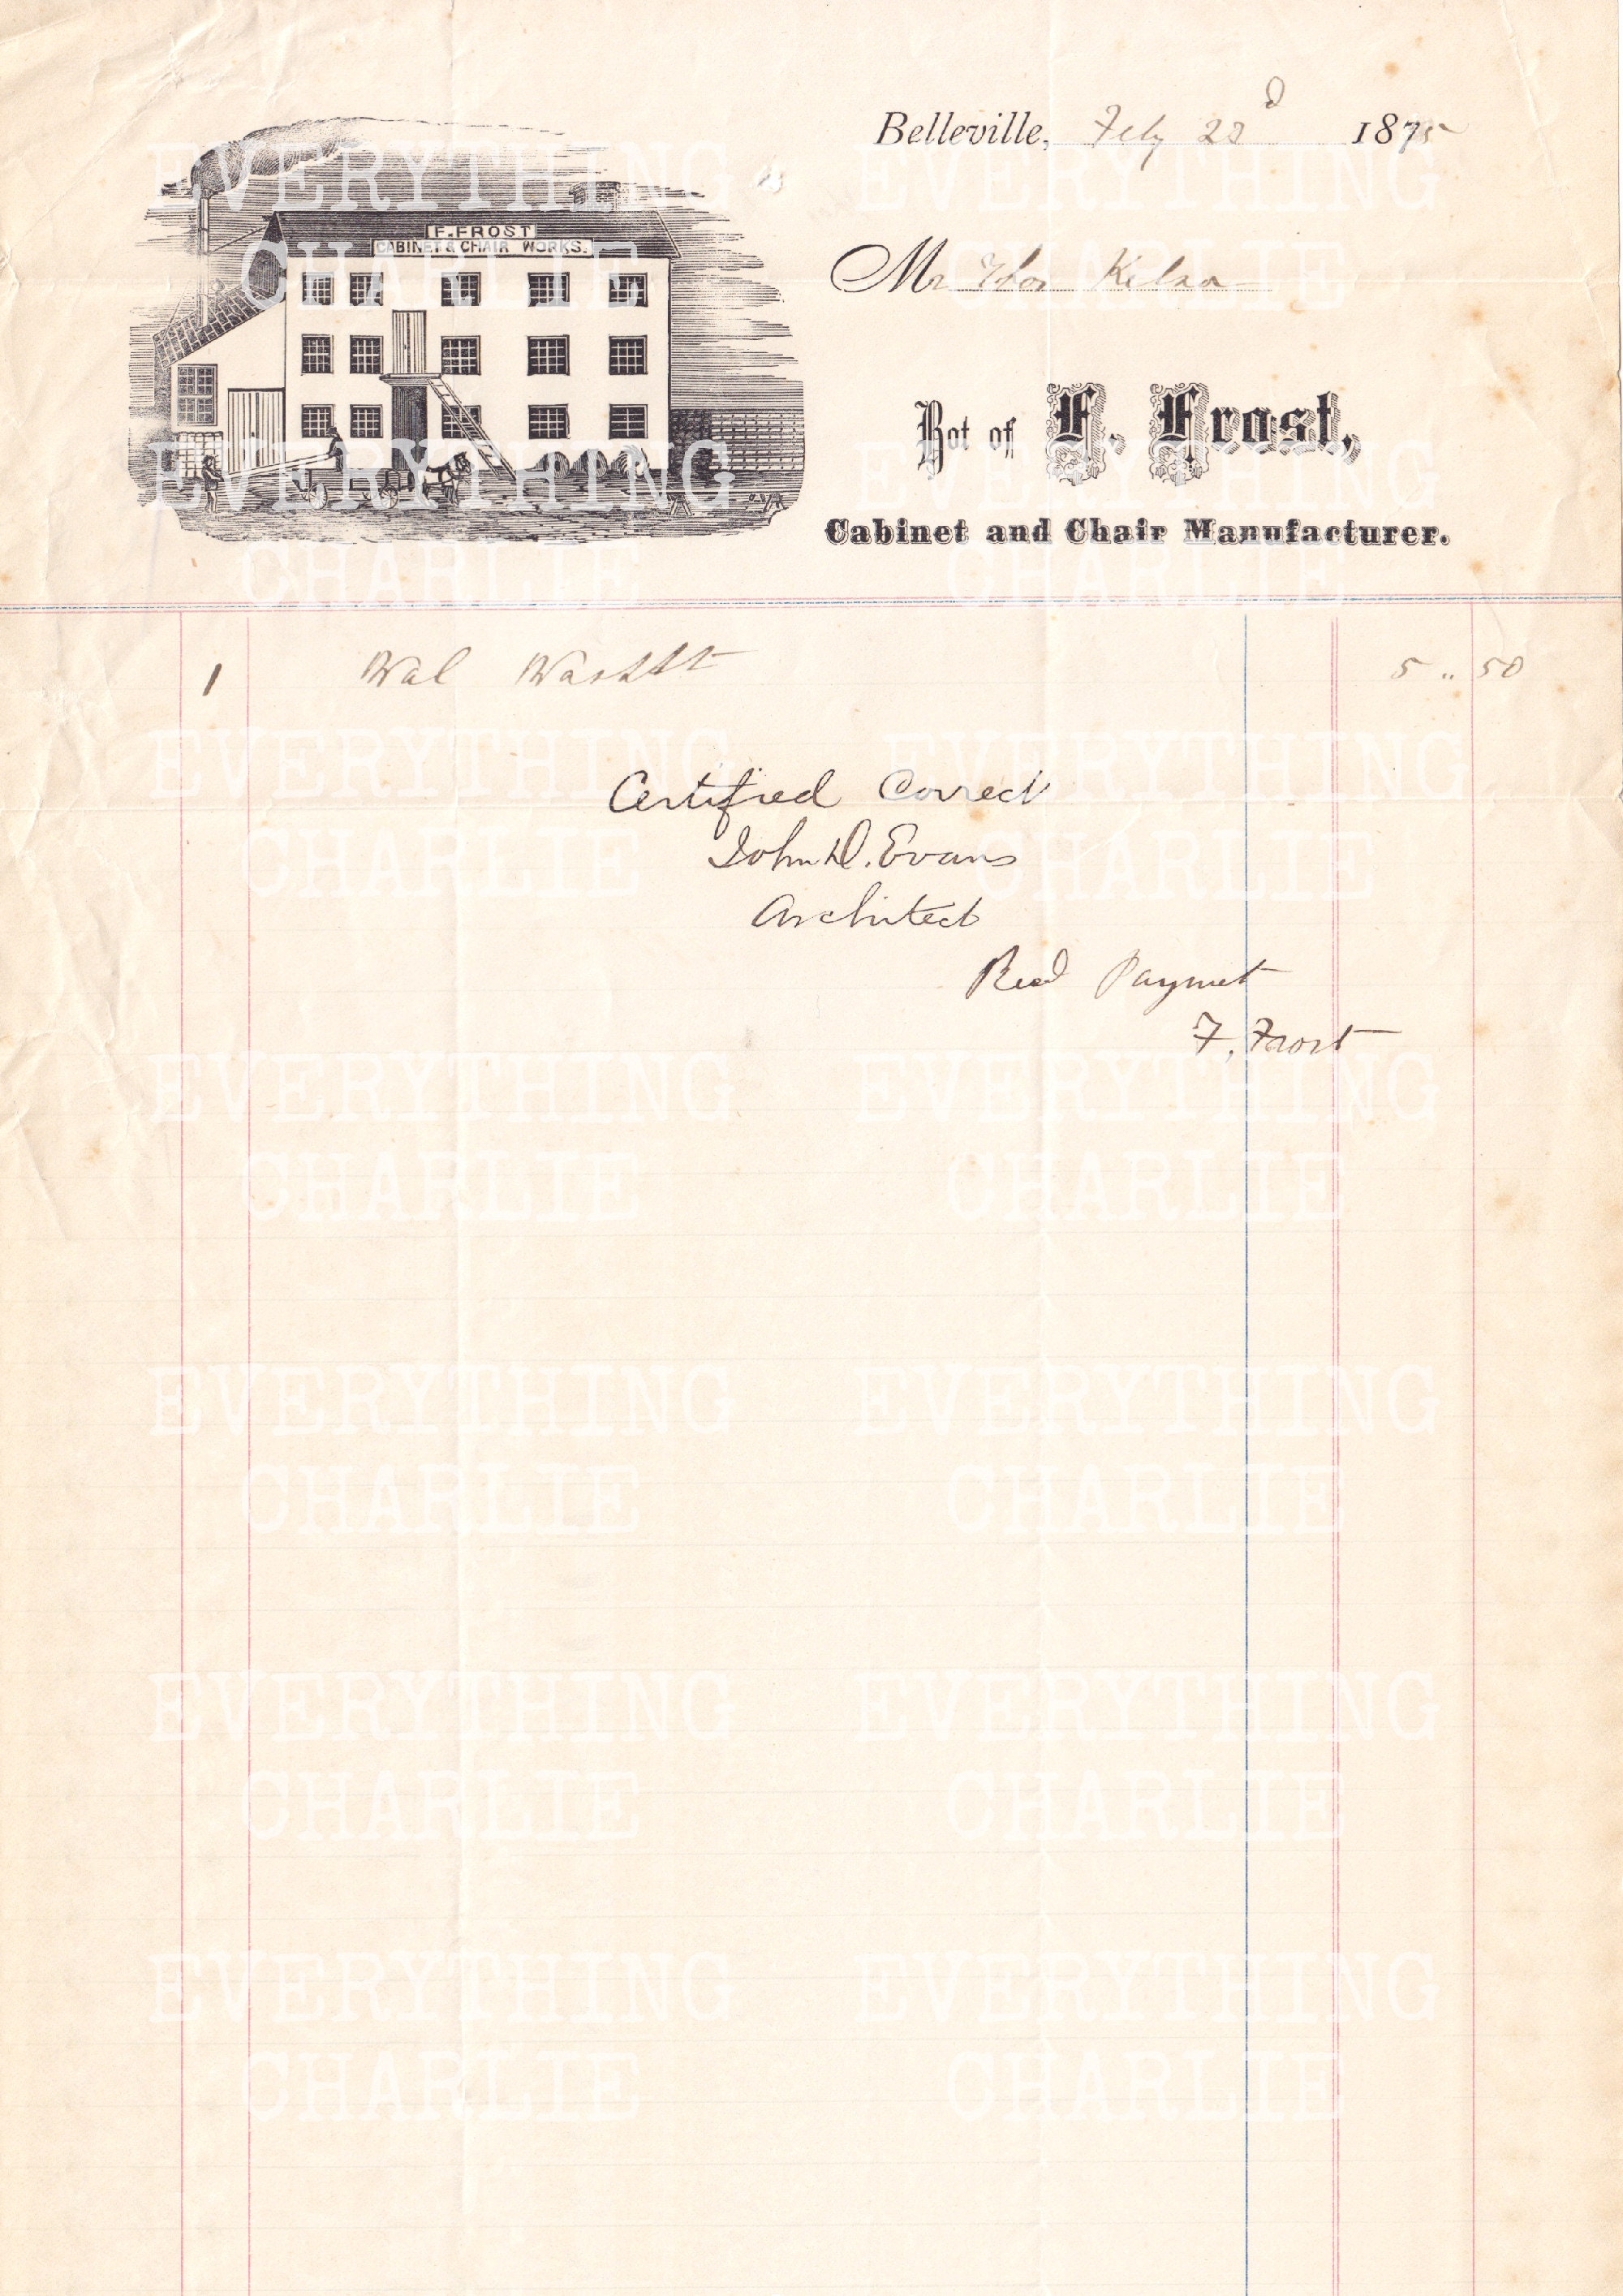 Belleville, Feby 23d 1875
F. FROST
CABINET & CHAIR WORKS.
Mr Thos Kelso
Bot of F. Frost,
Cabinet and Chair Manufacturer.
1 Wal Washst 5 .. 50
Certified Correct
John D. Evans
Architect
Recd Paymet
F. Frost
EVERYTHING EVERYTHING
CHARLIE CHARLIE
EVERYTHING EVERYTHING
CHARLIE CHARLIE
EVERYTHING EVERYTHING
CHARLIE CHARLIE
EVERYTHING EVERYTHING
CHARLIE CHARLIE
EVERYTHING EVERYTHING
CHARLIE CHARLIE
EVERYTHING EVERYTHING
CHARLIE CHARLIE
EVERYTHING EVERYTHING
CHARLIE CHARLIE